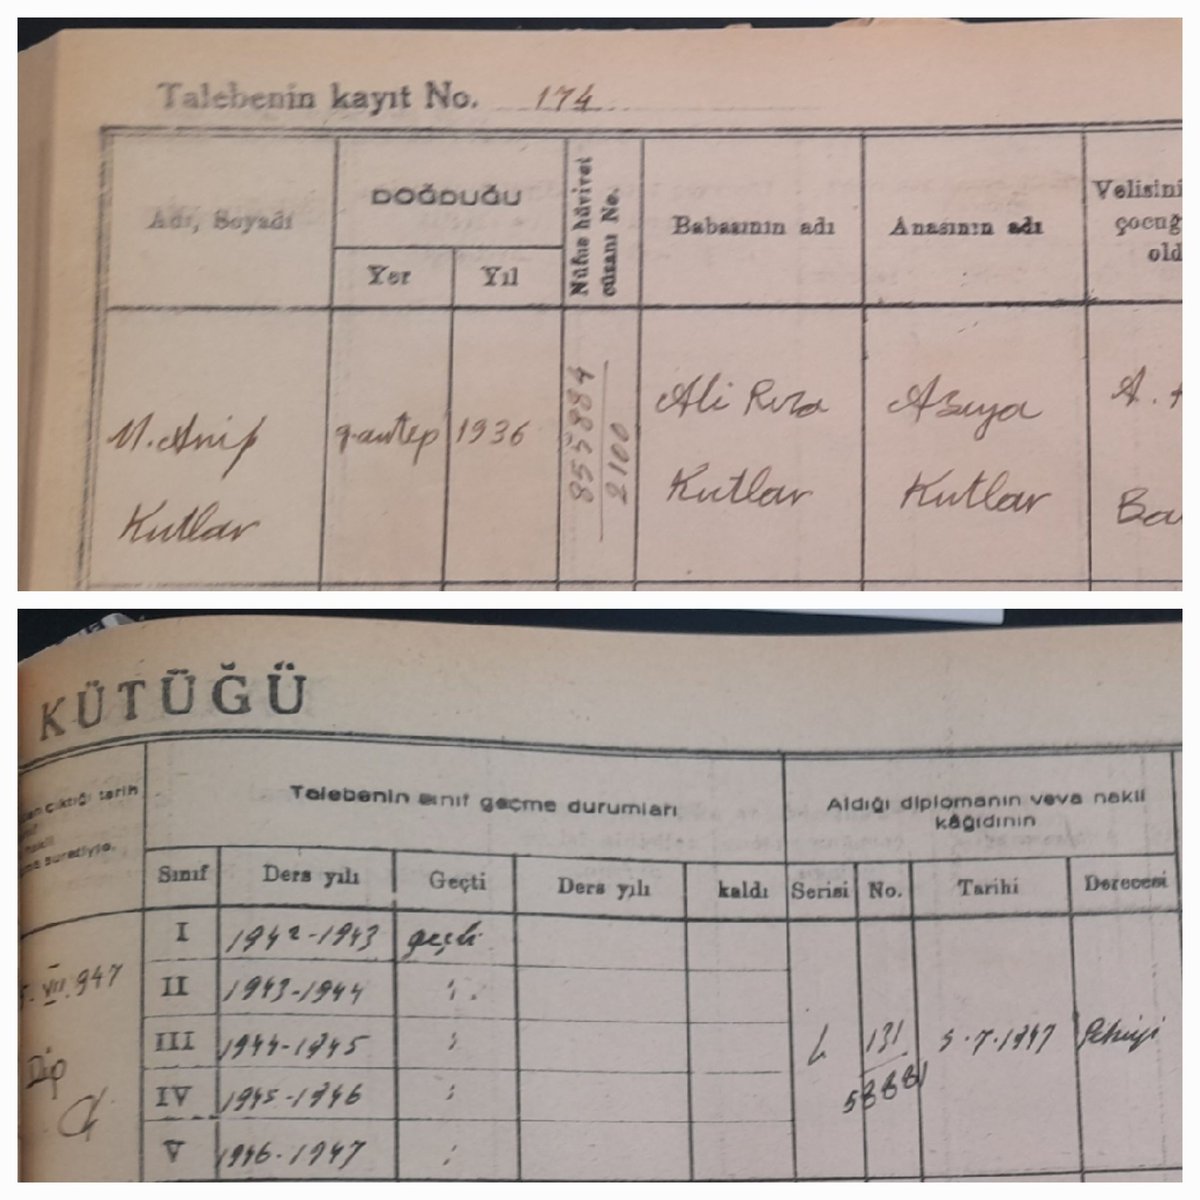 Talebenin kayıt No. 174
Adı, Soyadı
DOĞDUĞU
Yer
Yıl
Nüfus hüviyet
cüsanı No.
Babasının adı
Anasının adı
Velisini
çocuğ
old
M. Arif
Kutlar
g.antep
1936
855884
2100
Ali Rıza
Kutlar
Asıya
Kutlar
A.
Ba
KÜTÜĞÜ
çıktığı tarih
suretiyle.
Talebenin sınıf geçme durumları
Aldığı diplomanın veya nakil
kâğıdının
Sınıf
Ders yılı
Geçti
Ders yılı
kaldı
Serisi
No.
Tarihi
Derecesi
I 1942-1943 geçti
VII.947
II 1943-1944 "
III 1944-1945 "
L 131 5.7.1947 Pekiyi
58881
Dip
IV 1945-1946 "
V 1946-1947 "